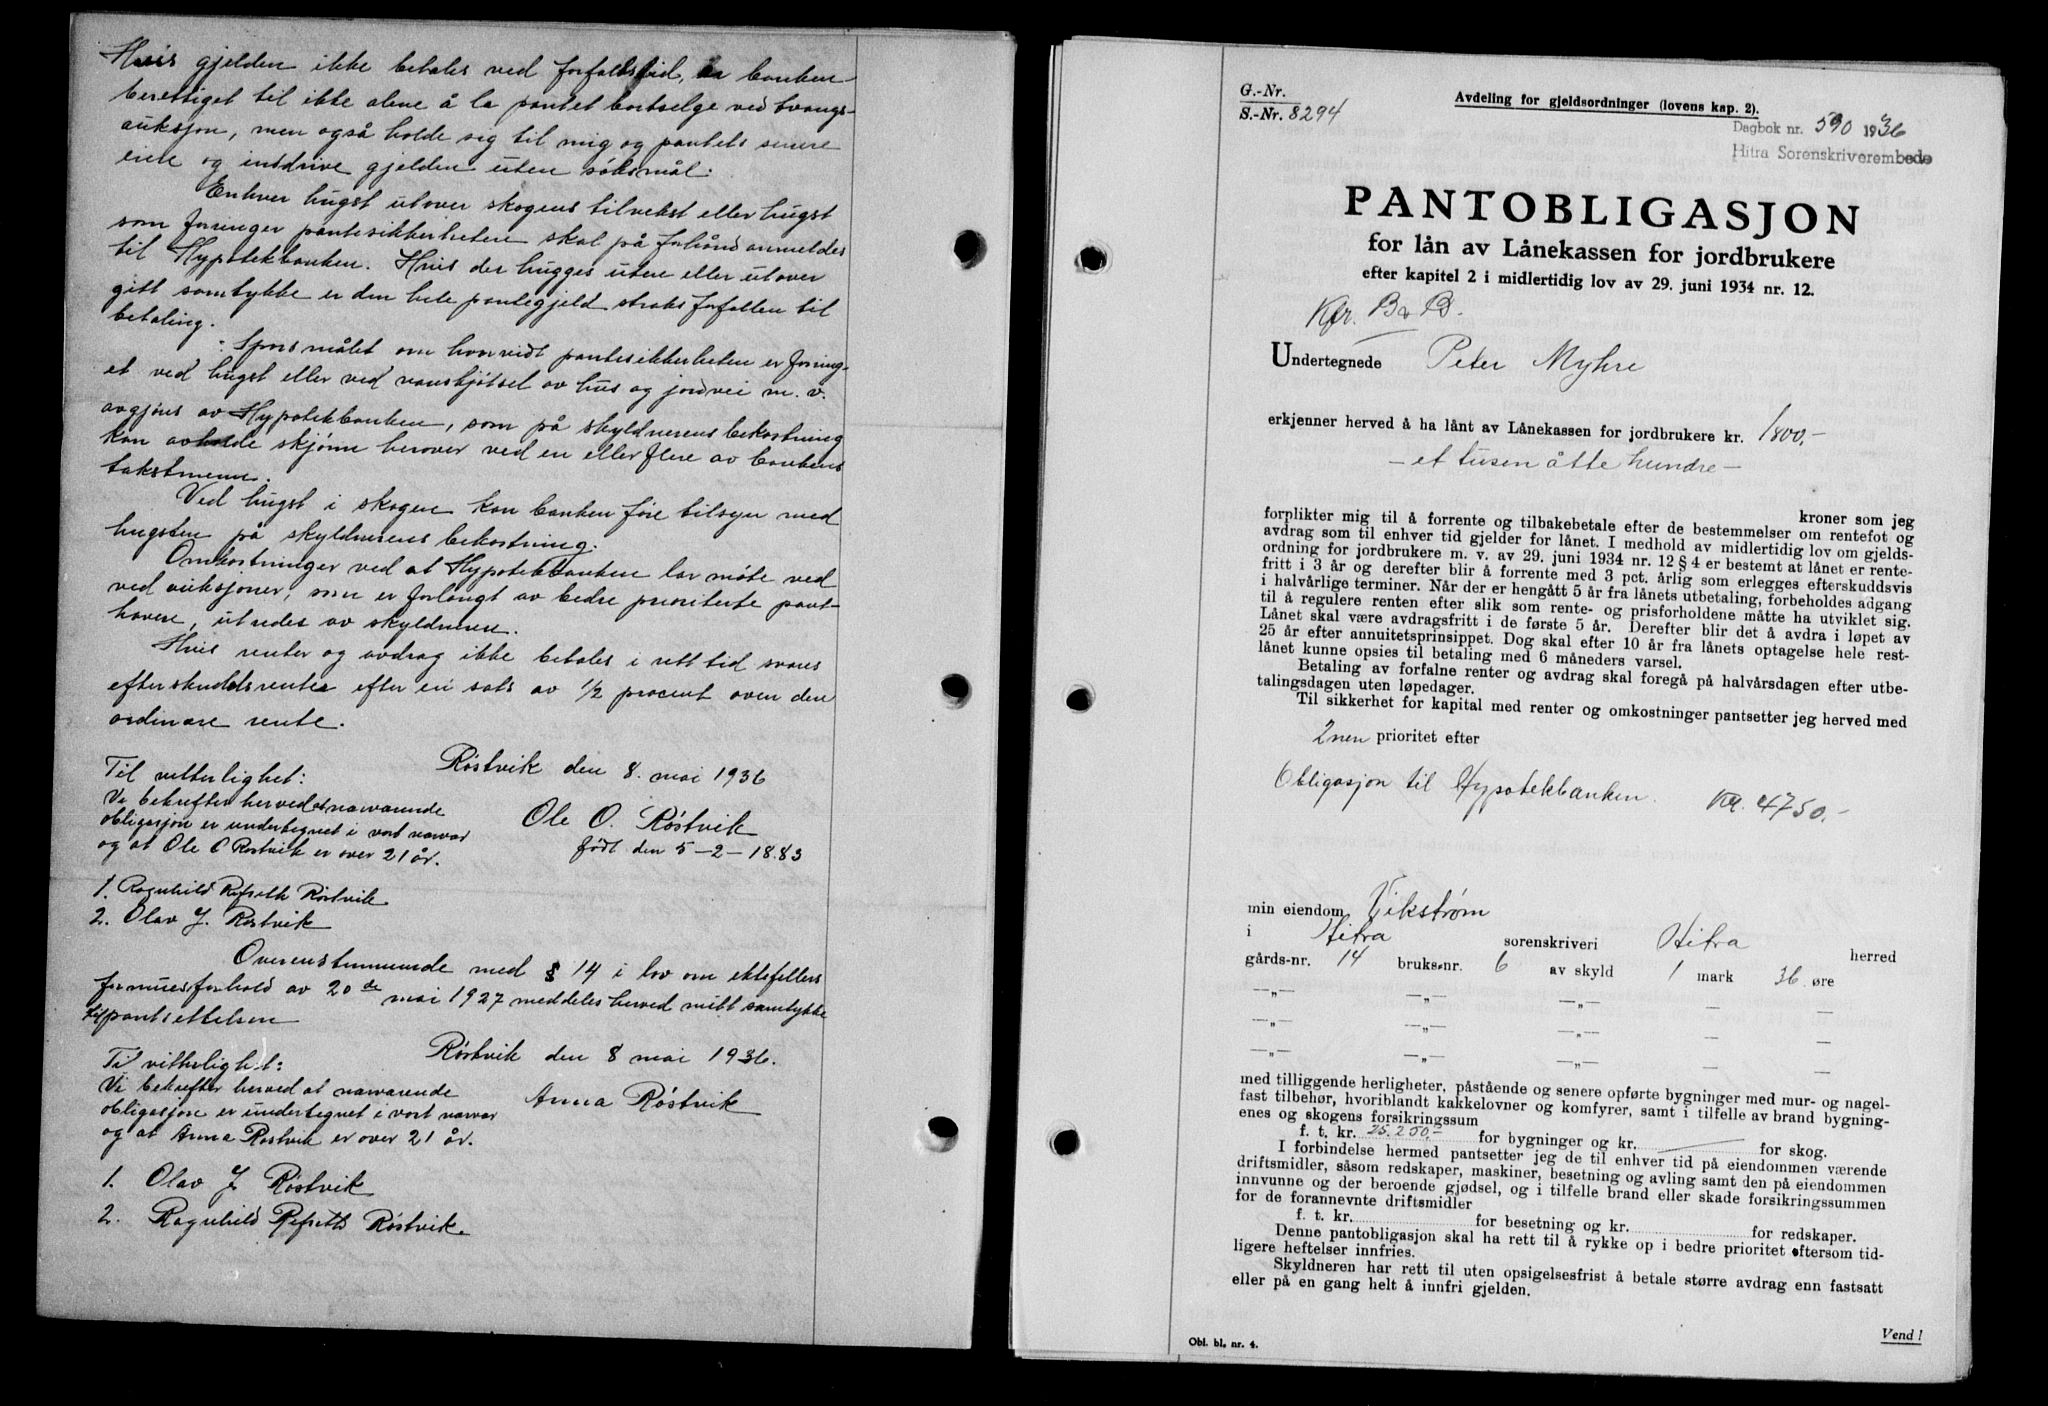 Hvis gjelden ikke betales ved forfallstid, er banken
berettiget til ikke alene å la pantet bortselge ved tvangs-
auksjon, men også holde sig til mig og pantets senere
eiere og inndrive gjelden uten søksmål.
Enhver hugst utover skogens tilvekst eller hugst
som forringer pantesikkerheten skal på forhånd anmeldes
til Hypotekbanken. Hvis der hugges uten eller utover
gitt samtykke er den hele pantegjeld straks forfallen til
betaling.
Spørsmålet om hvorvidt pantesikkerheten er forring-
et ved hugst eller ved vanskjøtsel av hus og jordvei m. v.
avgjøres av Hypotekbanken, som på skyldnerens bekostning
kan avholde skjønn herover ved en eller flere av bankens
takstmenn.
Ved hugst i skogen kan banken føre tilsyn med
hugsten på skyldnerens bekostning.
Omkostninger ved at Hypotekbanken lar møte ved
ved auksjoner, som er forlangt av bedre prioriterte pant-
havere, utredes av skyldneren.
Hvis renter og avdrag ikke betales i rett tid svares
efterskuddsrente efter en sats av 1/2 procent over den
ordinære rente.
Røstvik den 8. mai 1936
Til vitterlighet:
Vi bekrefter herved at nærværende
obligasjon er undertegnet i vort nærvær
og at Ole O Røstvik er over 21 år.
Ole O. Røstvik
født den 5-2-1883
1. Ragnhild Refseth Røstvik
2. Olav J. Røstvik
Overensstemmende med § 14 i lov om ektefellers
formuesforhold av 20de mai 1927 meddeles herved mitt samtykke
til pantsettelsen
Røstvik den 8 mai 1936.
Til vitterlighet:
Vi bekrefter herved at nærværende
obligasjon er undertegnet i vort nærvær
og at Anna Røstvik er over 21 år.
Anna Røstvik
1. Olav J. Røstvik
2. Ragnhild Refseth Røstvik.
G.-Nr.
S.-Nr. 8294
Avdeling for gjeldsordninger (lovens kap. 2).
Dagbok nr. 590 1936
Hitra Sorenskriverembede
PANTOBLIGASJON
for lån av Lånekassen for jordbrukere
efter kapitel 2 i midlertidig lov av 29. juni 1934 nr. 12.
Kfr. B & B.
Undertegnede Peter Myhre
erkjenner herved å ha lånt av Lånekassen for jordbrukere kr. 1800,-
- et tusen åtte hundre -
kroner som jeg
forplikter mig til å forrente og tilbakebetale efter de bestemmelser om rentefot og
avdrag som til enhver tid gjelder for lånet. I medhold av midlertidig lov om gjelds-
ordning for jordbrukere m. v. av 29. juni 1934 nr. 12 § 4 er bestemt at lånet er rente-
fritt i 3 år og derefter blir å forrente med 3 pct. årlig som erlegges efterskuddsvis
i halvårlige terminer. Når der er hengått 5 år fra lånets utbetaling, forbeholdes adgang
til å regulere renten efter slik som rente- og prisforholdene måtte ha utviklet sig.
Lånet skal være avdragsfritt i de første 5 år. Derefter blir det å avdra i løpet av
25 år efter annuitetsprinsippet. Dog skal efter 10 år fra lånets optagelse hele rest-
lånet kunne opsies til betaling med 6 måneders varsel.
Betaling av forfalne renter og avdrag skal foregå på halvårsdagen efter utbe-
talingsdagen uten løpedager.
Til sikkerhet for kapital med renter og omkostninger pantsetter jeg herved med
2nen prioritet efter
Obligasjon til Hypotekbanken. Kr. 4750,-
min eiendom Vikstrøm
i Hitra sorenskriveri Hitra herred
gårds-nr. 14 bruks-nr. 6 av skyld 1 mark 36 øre
—„— —„— —„— — —
—„— —„— —„— — —
—„— —„— —„— — —
med tilliggende herligheter, påstående og senere opførte bygninger med mur- og nagel-
fast tilbehør, hvoriblandt kakkelovner og komfyrer, samt i tilfelle av brand bygning-
enes og skogens forsikringssum
f. t. kr. 25.250,- for bygninger og kr. — for skog.
I forbindelse hermed pantsetter jeg de til enhver tid på eiendommen værende
driftsmidler, såsom redskaper, maskiner, besetning og avling samt den på eiendommen
innvunne og der beroende gjødsel, og i tilfelle brand eller skade forsikringssummen
for de forannevnte driftsmidler
f. t. kr. for besetning og kr. for redskaper.
Denne pantobligasjon skal ha rett til å rykke op i bedre prioritet eftersom tid-
ligere heftelser innfries.
Skyldneren har rett til uten opsigelsesfrist å betale større avdrag enn fastsatt
eller på en gang helt å innfri gjelden.
Vend!
Obl. bl. nr. 4.